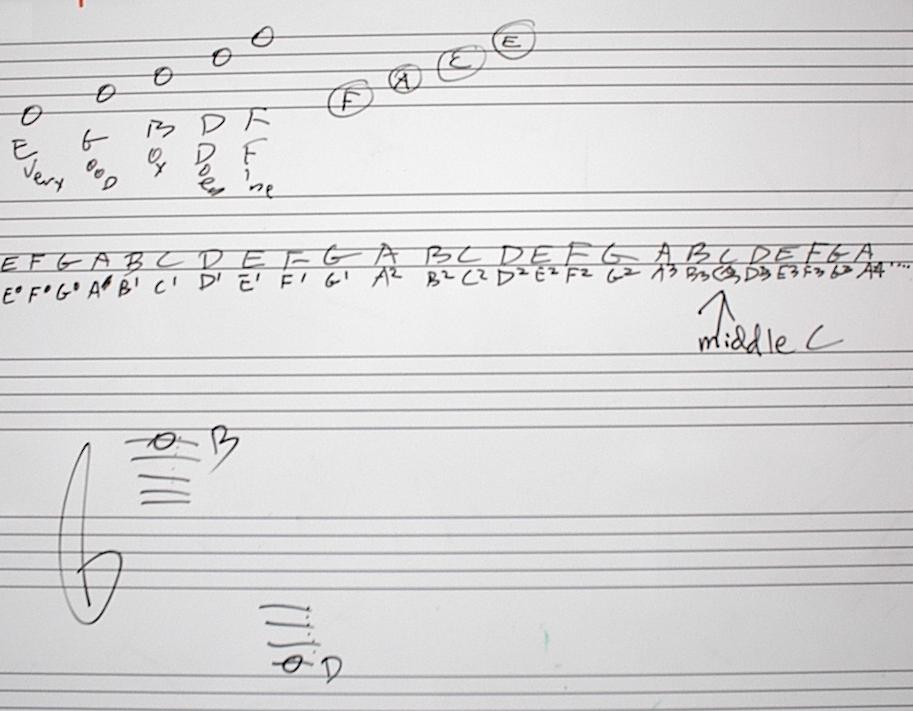 F A C E
E G B D F
Very ooD ox Does ine
E F G A B C D E F G A B C D E F G A B C D E F G A
E⁰ F⁰ G⁰ A⁰ B¹ C¹ D¹ E¹ F¹ G¹ A² B² C² D² E² F² G² A³ B3 C3 D3 E3 F3 G3 A4....
middle C
B
D